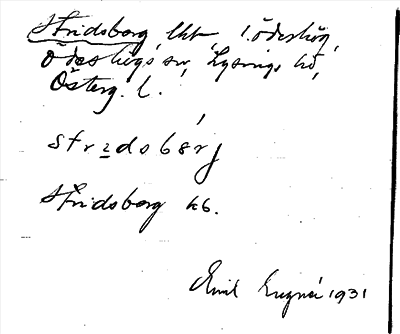 Stridsborg lht i Ödeshög,
Ödeshögs sn, Lysings hd,
Österg. l.
strɩdsbórj
Stridsborg kb.
Emil 1931